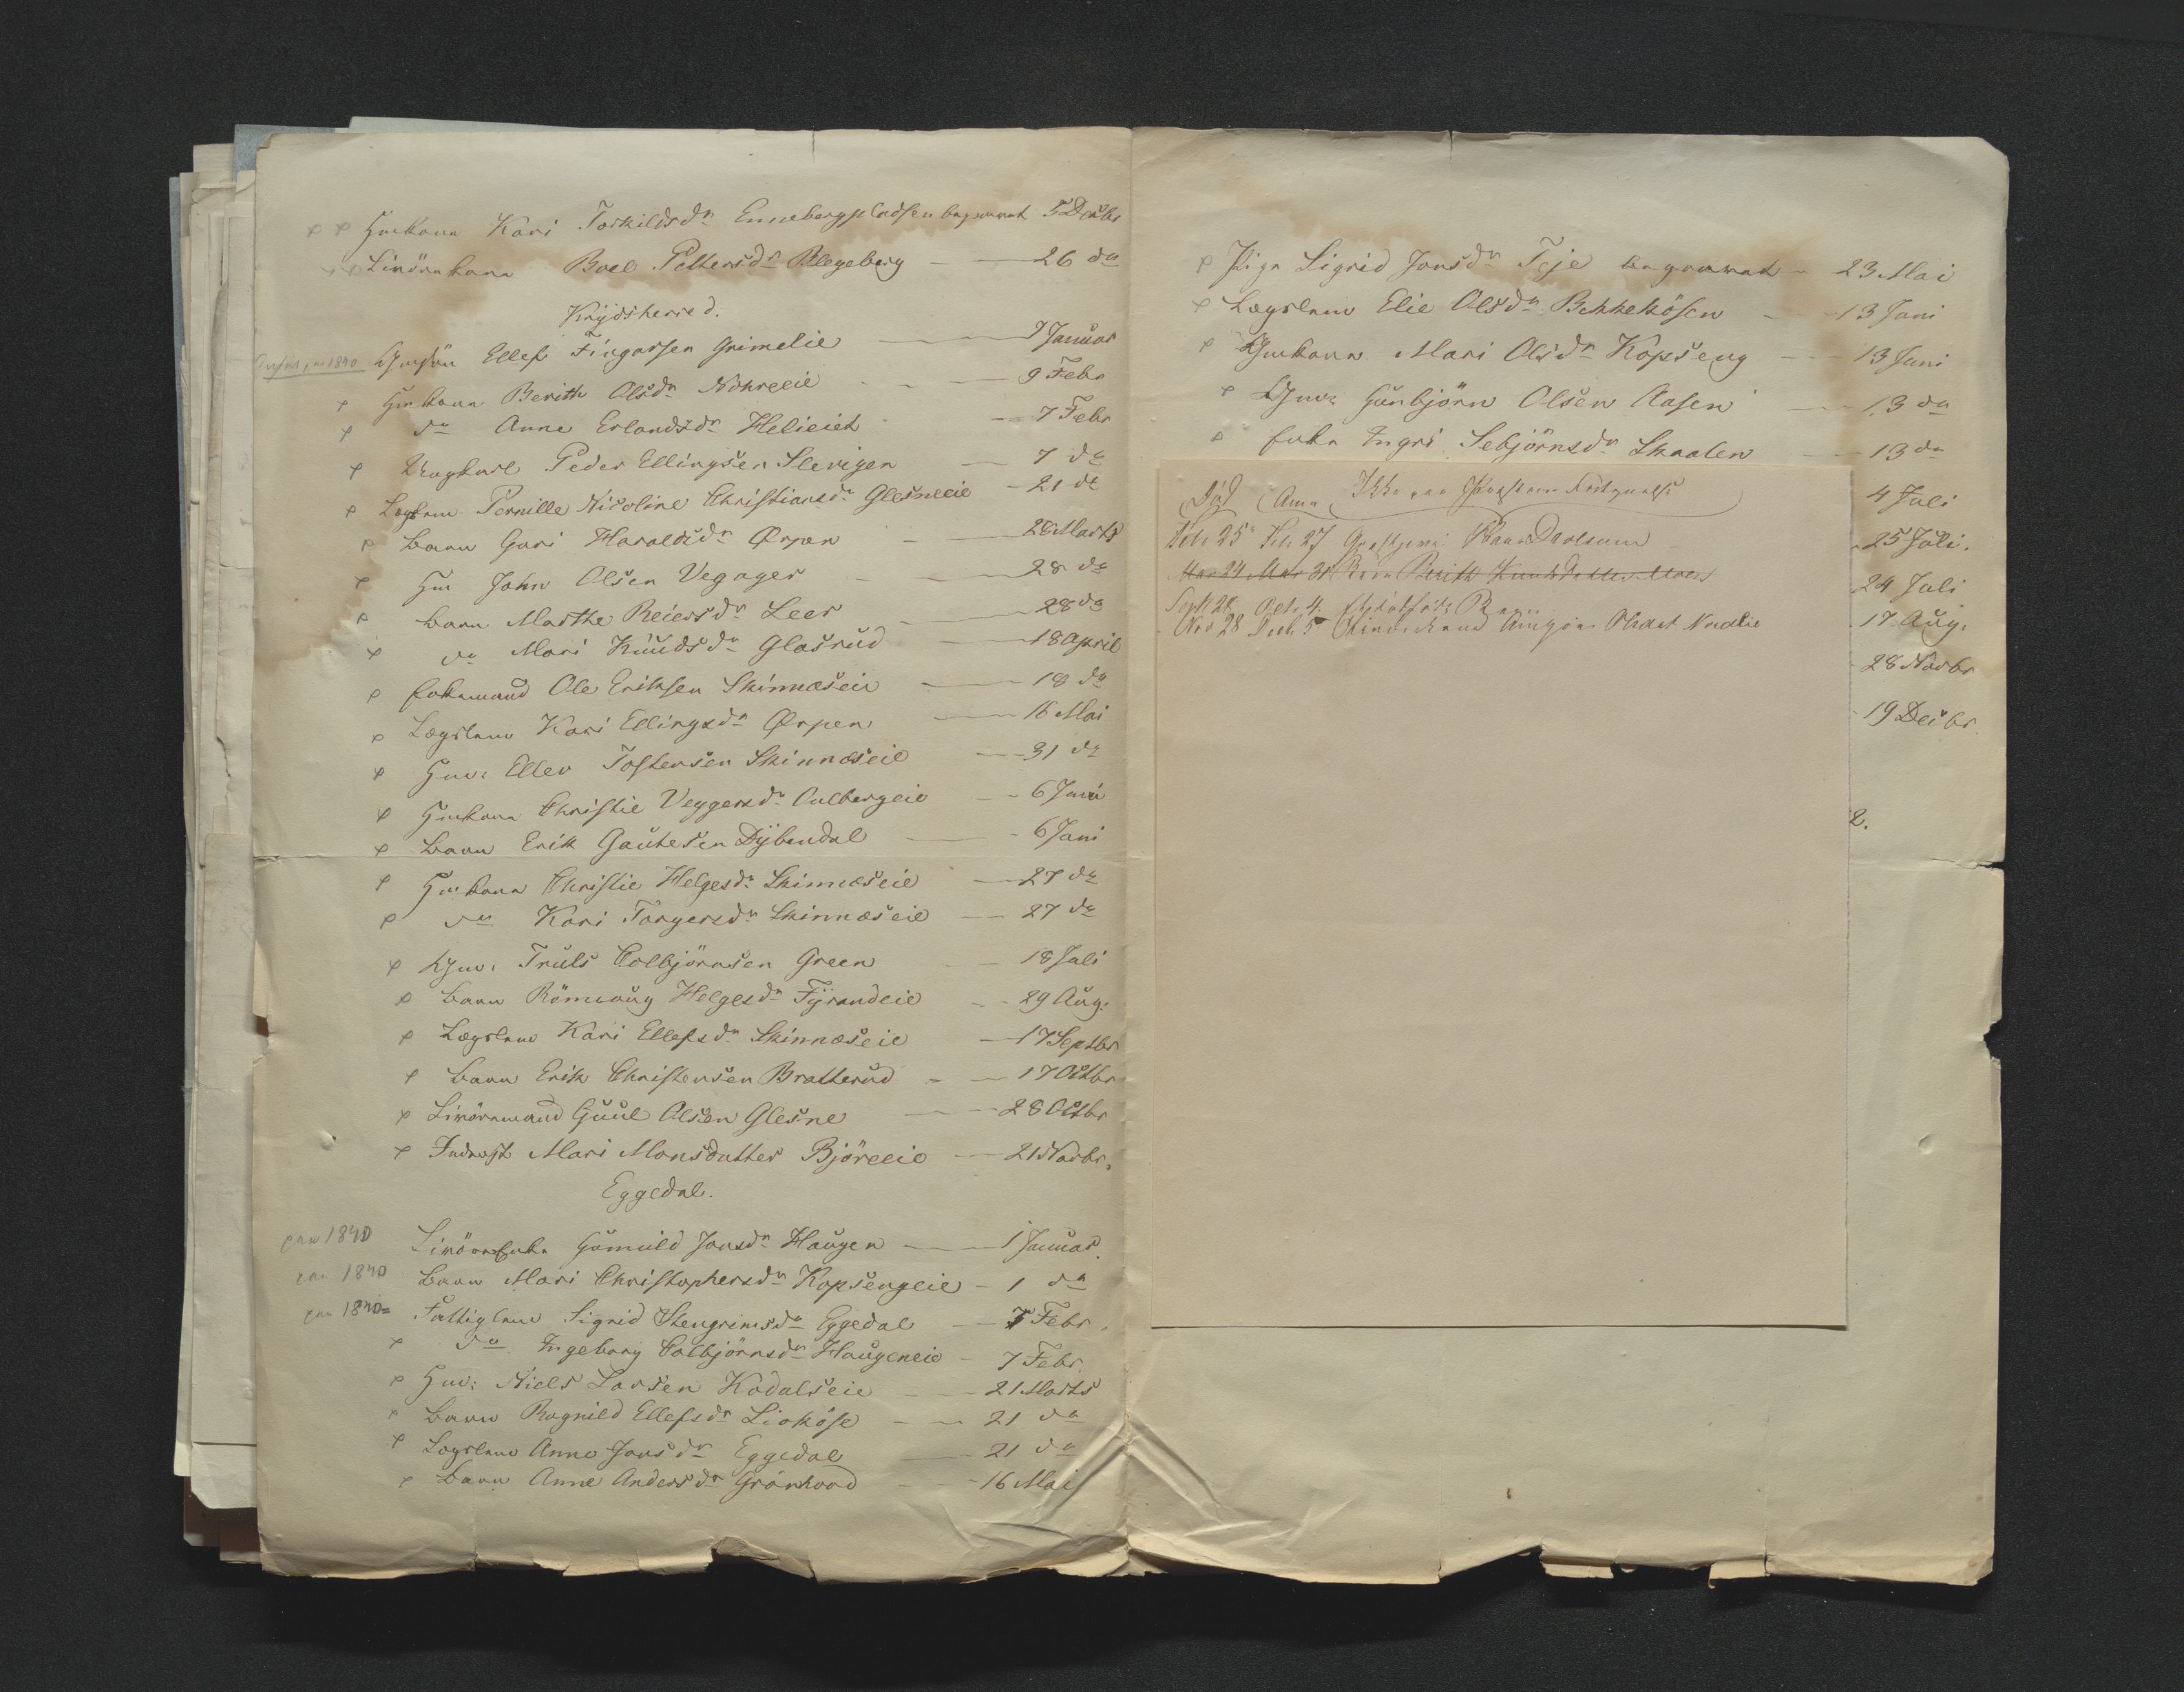 Huuskone Kari Torkildsdr Ennebergpladsen begravet 5 Decbr
Boel Pettersdr Blegeberg — 26 do
Krydsherred.
Ellef Fingarsen Grimelie — 7 Januar
Berith Olsdr Nohreeie — 9 Febr
do Anne Erlandsdr Helieiet — 7 Febr
Ungkarl Peder Ellingsen Slevigen — 7 do
Lægslem Pernille Nicoline Christiansdr Glesneeie — 21 do
Barn Guri Haraldsdr Ørpen — 28 Marts
Hm John Olsen Vegager — 28 do
Barn Marthe Reiersdr Leer — 28 do
do Mari Knudsdr Glasrud — 18 April
Enkemand Ole Eriksen Skinnæseie — 18 do
Lægslem Kari Ellingsdr Ørpen — 16 Mai
Hm: Ellev Tostensen Skinnæseie — 31 do
Hmkone Christie Veggersdr Aulbergeie — 6 Juni
Barn Erik Gautesen Dybendal — 6 Juni
Hmkone Christie Helgesdr Skinnæseie — 27 do
do Kari Torgersdr Skinnæseie — 27 do
Gm: Truls Colbjörnsen Green — 18 Juli
Barn Römoaug Helgesdr Fyrandeie — 29 Aug.
Lægslem Kari Ellefsdr Skinnæseie — 17 Septbr
Barn Erik Christensen Bratterud — 17 Octbr
Guul Olsen Glesne — 28 Octbr
Inderst Mari Monsdatter Björeeie — 21 Novbr.
Eggedal.
pro 1840 Gunuild Jonsdr Haugen — 1 Januar.
pro 1840 Barn Mari Christophersdr Kopsengeie — 1 do
pro 1840 Fattiglem Sigrid Stengrimsdr Eggedal — 7 Febr.
do Ingeborg Colbjörnsdr Haugeneie — 7 Febr.
Hm: Niels Larsen Kodalseie — 21 Marts
Barn Ragnild Ellefsdr Lioköse — 21 do
Lægslem Anne Jonsdr Eggedal — 21 do
Barn Anne Andersdr Grönhovd — 16 Mai
Pige Sigrid Jonsdr Teje begravet — 23 Mai
Lægslem Elie Olsdr Bekkekösen — 13 Juni
Gmkone Mari Olsdr Kopseng — 13 Juni
Gm: Gunbjörn Olsen Aasen — 13 do
Enke Ingri Sebjörnsdr Skaalen — 13 do
4 Juli
25 Juli.
24 Juli
17 Aug.
28 Novbr
19 Decbr.
2.
Död Ikke paa
Feb 25 Feb 27
Mar 24 Mar 31 Barn Berith Knudsdatter Moen
Sept 28 Oct. 4.
Nov 28 Decb 5